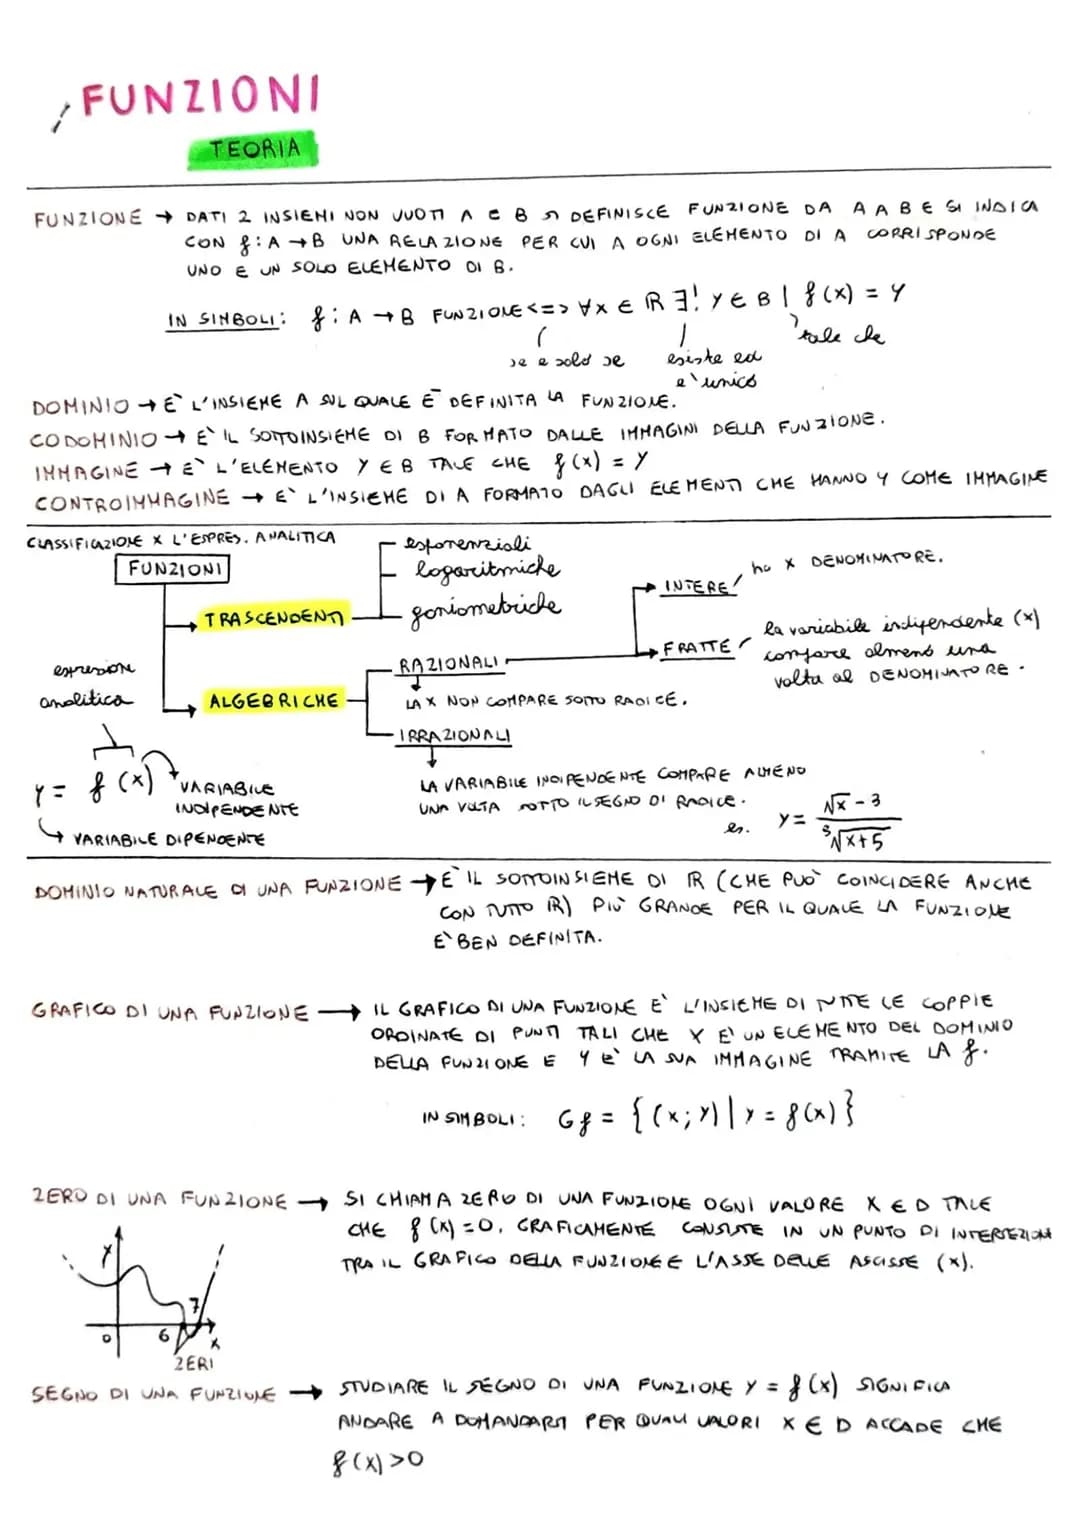 FUNZIONI
TEORIA
FUNZIONE → DATI 2 INSIEMI NON VUOTI A E B SI DEFINISCE FUNZIONE DA A A B E SI INDICA
CON f: A → B UNA RELAZIONE PER CUI A OGNI ELEMENTO DI A CORRISPONDE
UNO E UN SOLO ELEMENTO DI B.
IN SIMBOLI: f: A → B FUNZIONE <=> ∀x ∈ ℝ ∃! y ∈ B | f(x) = y
tale che
se e solo se esiste ed
e' unico
DOMINIO → E' L'INSIEME A SUL QUALE E' DEFINITA LA FUNZIONE.
CODOMINIO → E' IL SOTTOINSIEME DI B FORMATO DALLE IMMAGINI DELLA FUNZIONE.
IMMAGINE → E' L'ELEMENTO Y ∈ B TALE CHE f(x) = y
CONTROIMMAGINE → E' L'INSIEME DI A FORMATO DAGLI ELEMENTI CHE HANNO Y COME IMMAGINE
CLASSIFICAZIONE X L'ESPRES. ANALITICA
FUNZIONI
TRASCENDENTI
esponenziali
logaritmiche
goniometriche
ALGEBRICHE
RAZIONALI
LA X NON COMPARE SOTTO RADICE.
INTERE no X DENOMINATORE.
FRATTE la variabile indipendente (x)
compare almeno una
volta al DENOMINATORE.
IRRAZIONALI
LA VARIABILE INDIPENDENTE COMPARE ALMENO
UNA VOLTA SOTTO IL SEGNO DI RADICE.
es. y = (√x - 3) / (∛x+5)
espressione
analitica
y = f(x)
VARIABILE
INDIPENDENTE
VARIABILE DIPENDENTE
DOMINIO NATURALE DI UNA FUNZIONE → E' IL SOTTOINSIEME DI ℝ (CHE PUO' COINCIDERE ANCHE
CON TUTTO ℝ) PIU' GRANDE PER IL QUALE LA FUNZIONE
E' BEN DEFINITA.
GRAFICO DI UNA FUNZIONE → IL GRAFICO DI UNA FUNZIONE E' L'INSIEME DI TUTTE LE COPPIE
ORDINATE DI PUNTI TALI CHE X E' UN ELEMENTO DEL DOMINIO
DELLA FUNZIONE E Y E' LA SUA IMMAGINE TRAMITE LA f.
IN SIMBOLI: Gf = {(x; y) | y = f(x)}
ZERO DI UNA FUNZIONE → SI CHIAMA ZERO DI UNA FUNZIONE OGNI VALORE X ∈ D TALE
CHE f(x) = 0. GRAFICAMENTE CONSISTE IN UN PUNTO DI INTERSEZIONE
TRA IL GRAFICO DELLA FUNZIONE E L'ASSE DELLE ASCISSE (x).
y
7
0
6
x
ZERI
SEGNO DI UNA FUNZIONE → STUDIARE IL SEGNO DI UNA FUNZIONE Y = f(x) SIGNIFICA
ANDARE A DOMANDARSI PER QUALI VALORI X ∈ D ACCADE CHE
f(x) > 0